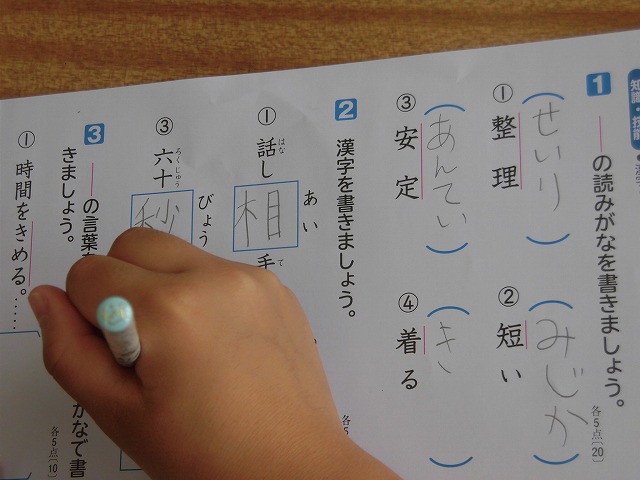 知識・技能
1 ――の読みがなを書きましょう。
各5点〔20〕
① 整理
せいり
② 短い
みじか
③ 安定
あんてい
④ 着る
き
2 漢字を書きましょう。
各5
① 話し相手
はな
あい
て
③ 六十秒
ろくじゅう
びょう
3 ――の言葉を
かなで書
きましょう。
各5点〔10〕
① 時間をきめる。……